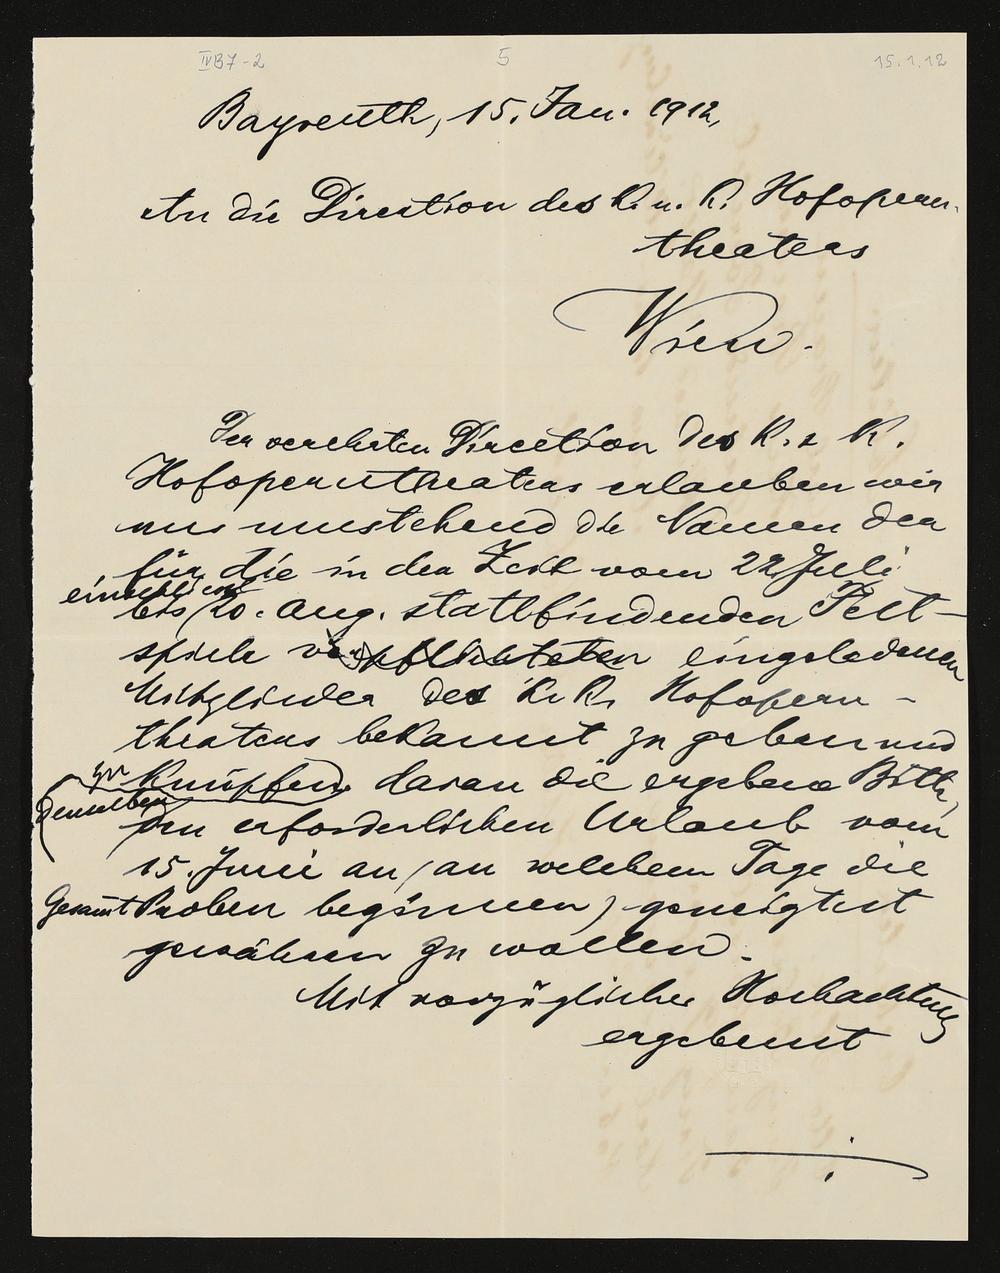 IVB7-2
5
15.1.12
Bayreuth, 15. Jan. 1912,
An die Direction des K. u. K. Hofopern-
theaters
Wien.
Der verehrten Direction des K. & K.
Hofoperntheaters erlauben wir
uns umstehend die Namen der
für die in der Zeit vom 22. Juli
einschließlich
bis 20. Aug. stattfindenden Fest-
spiele verpflichteten eingeladenen
Mitglieder des K. K. Hofopern-
theaters bekannt zu geben und
zu
knüpfen daran die ergebene Bitte,
denselben
den erforderlichen Urlaub vom
15. Juni an (an welchem Tage die
Gesamt Proben beginnen) geneigtest
gewähren zu wollen.
Mit vorzüglicher Hochachtung
ergebenst